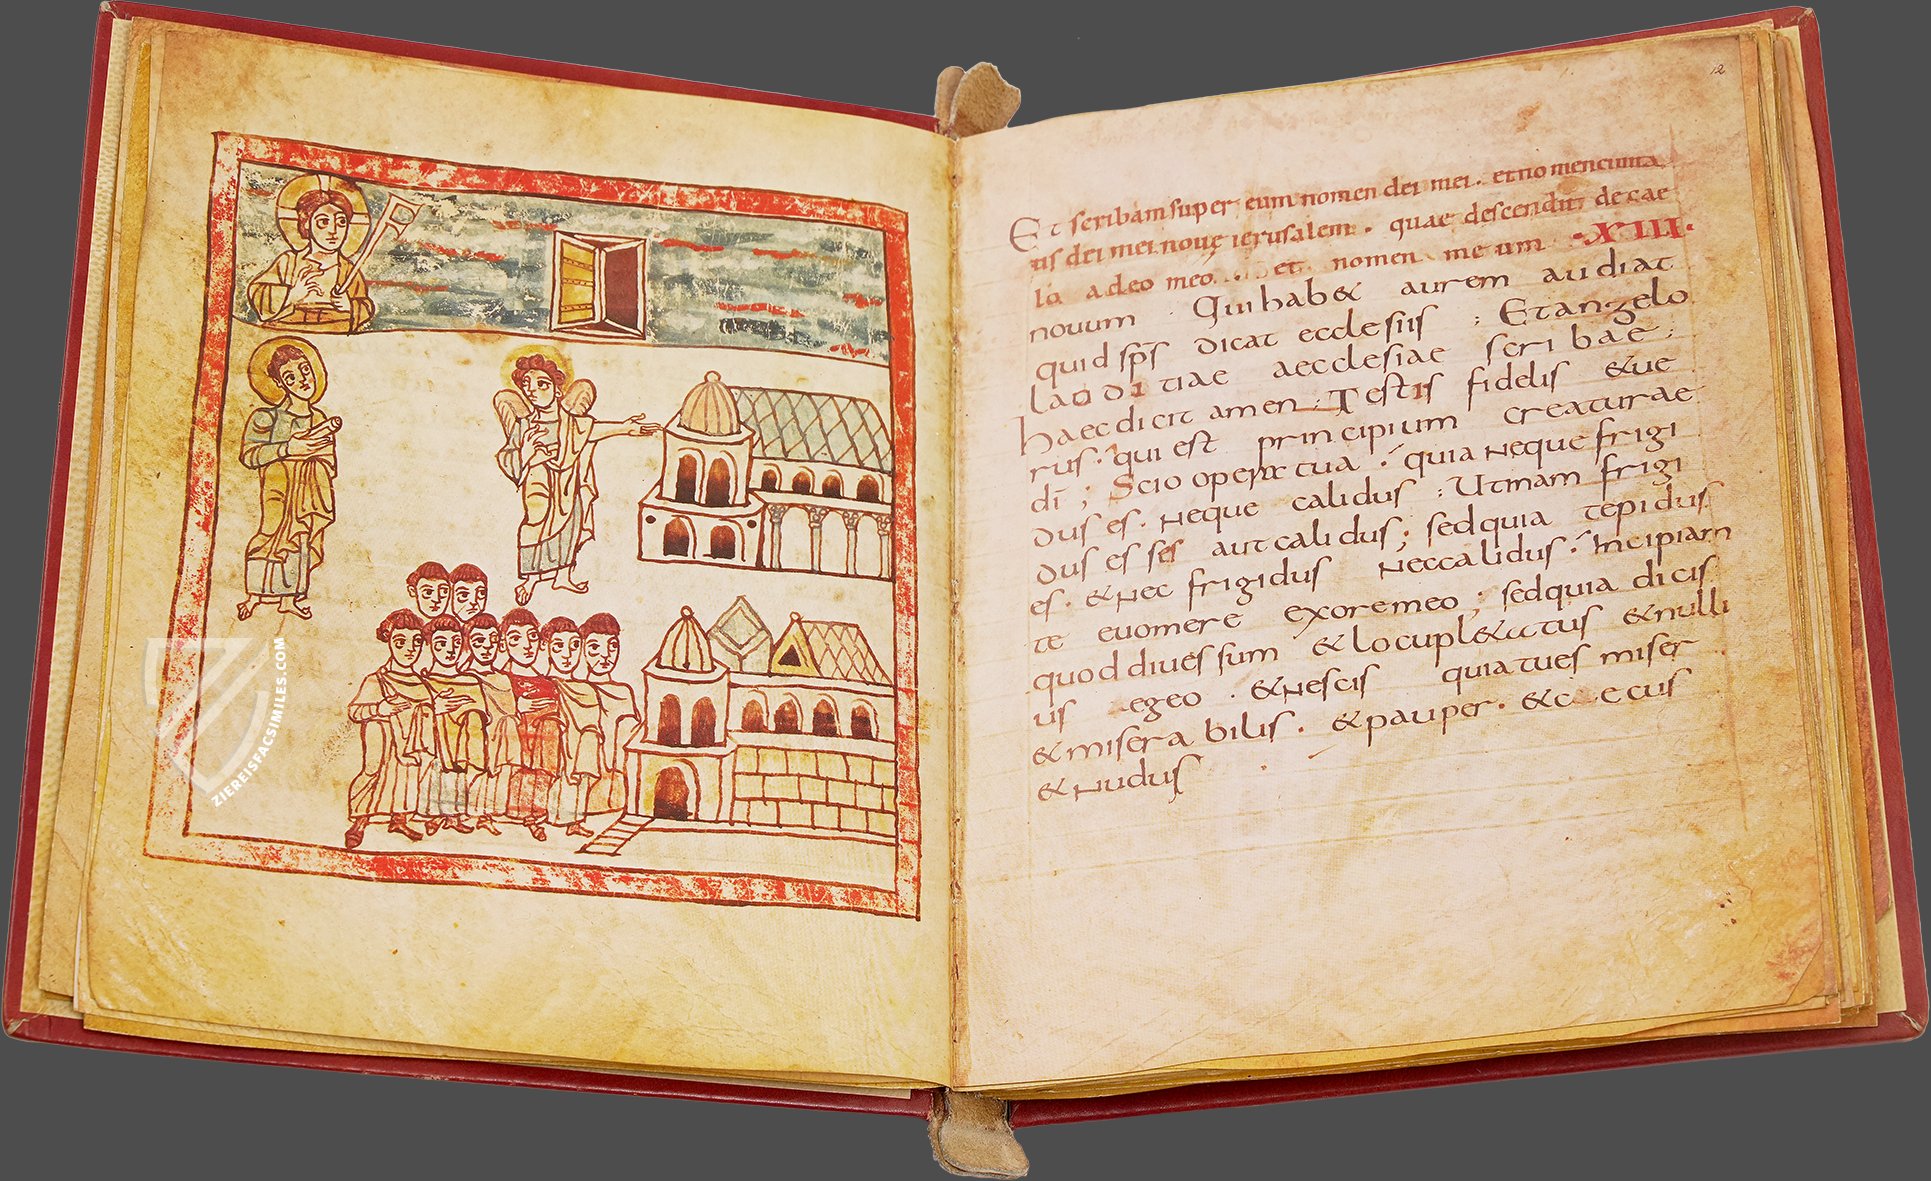 ZIEREISFACSIMILES.COM
12
Et scribam super eum nomen dei mei · et nomen civita
tis dei mei nove ierusalem · quae descendit de cae
lo a deo meo · et nomen meum · XIII ·
novum · Qui hab& aurem audiat
quid sp̅s dicat ecclesiis ; Et angelo
laoditiae aecclesiae scribae ;
haec dicit amen ; Testis fidelis &ve
rus · qui est principium creaturae
di̅ ; Scio opera tua · quia neque frigi
dus es · neque calidus ; Utinam frigi
dus esses aut calidus ; sed quia tepidus
es · & nec frigidus nec calidus · incipiam
te evomere ex ore meo ; sed quia dicis
quod dives sum & locupl&atus & nulli
us egeo · & nescis quia tu es miser
& miserabilis · & pauper · & cecus
& nudus